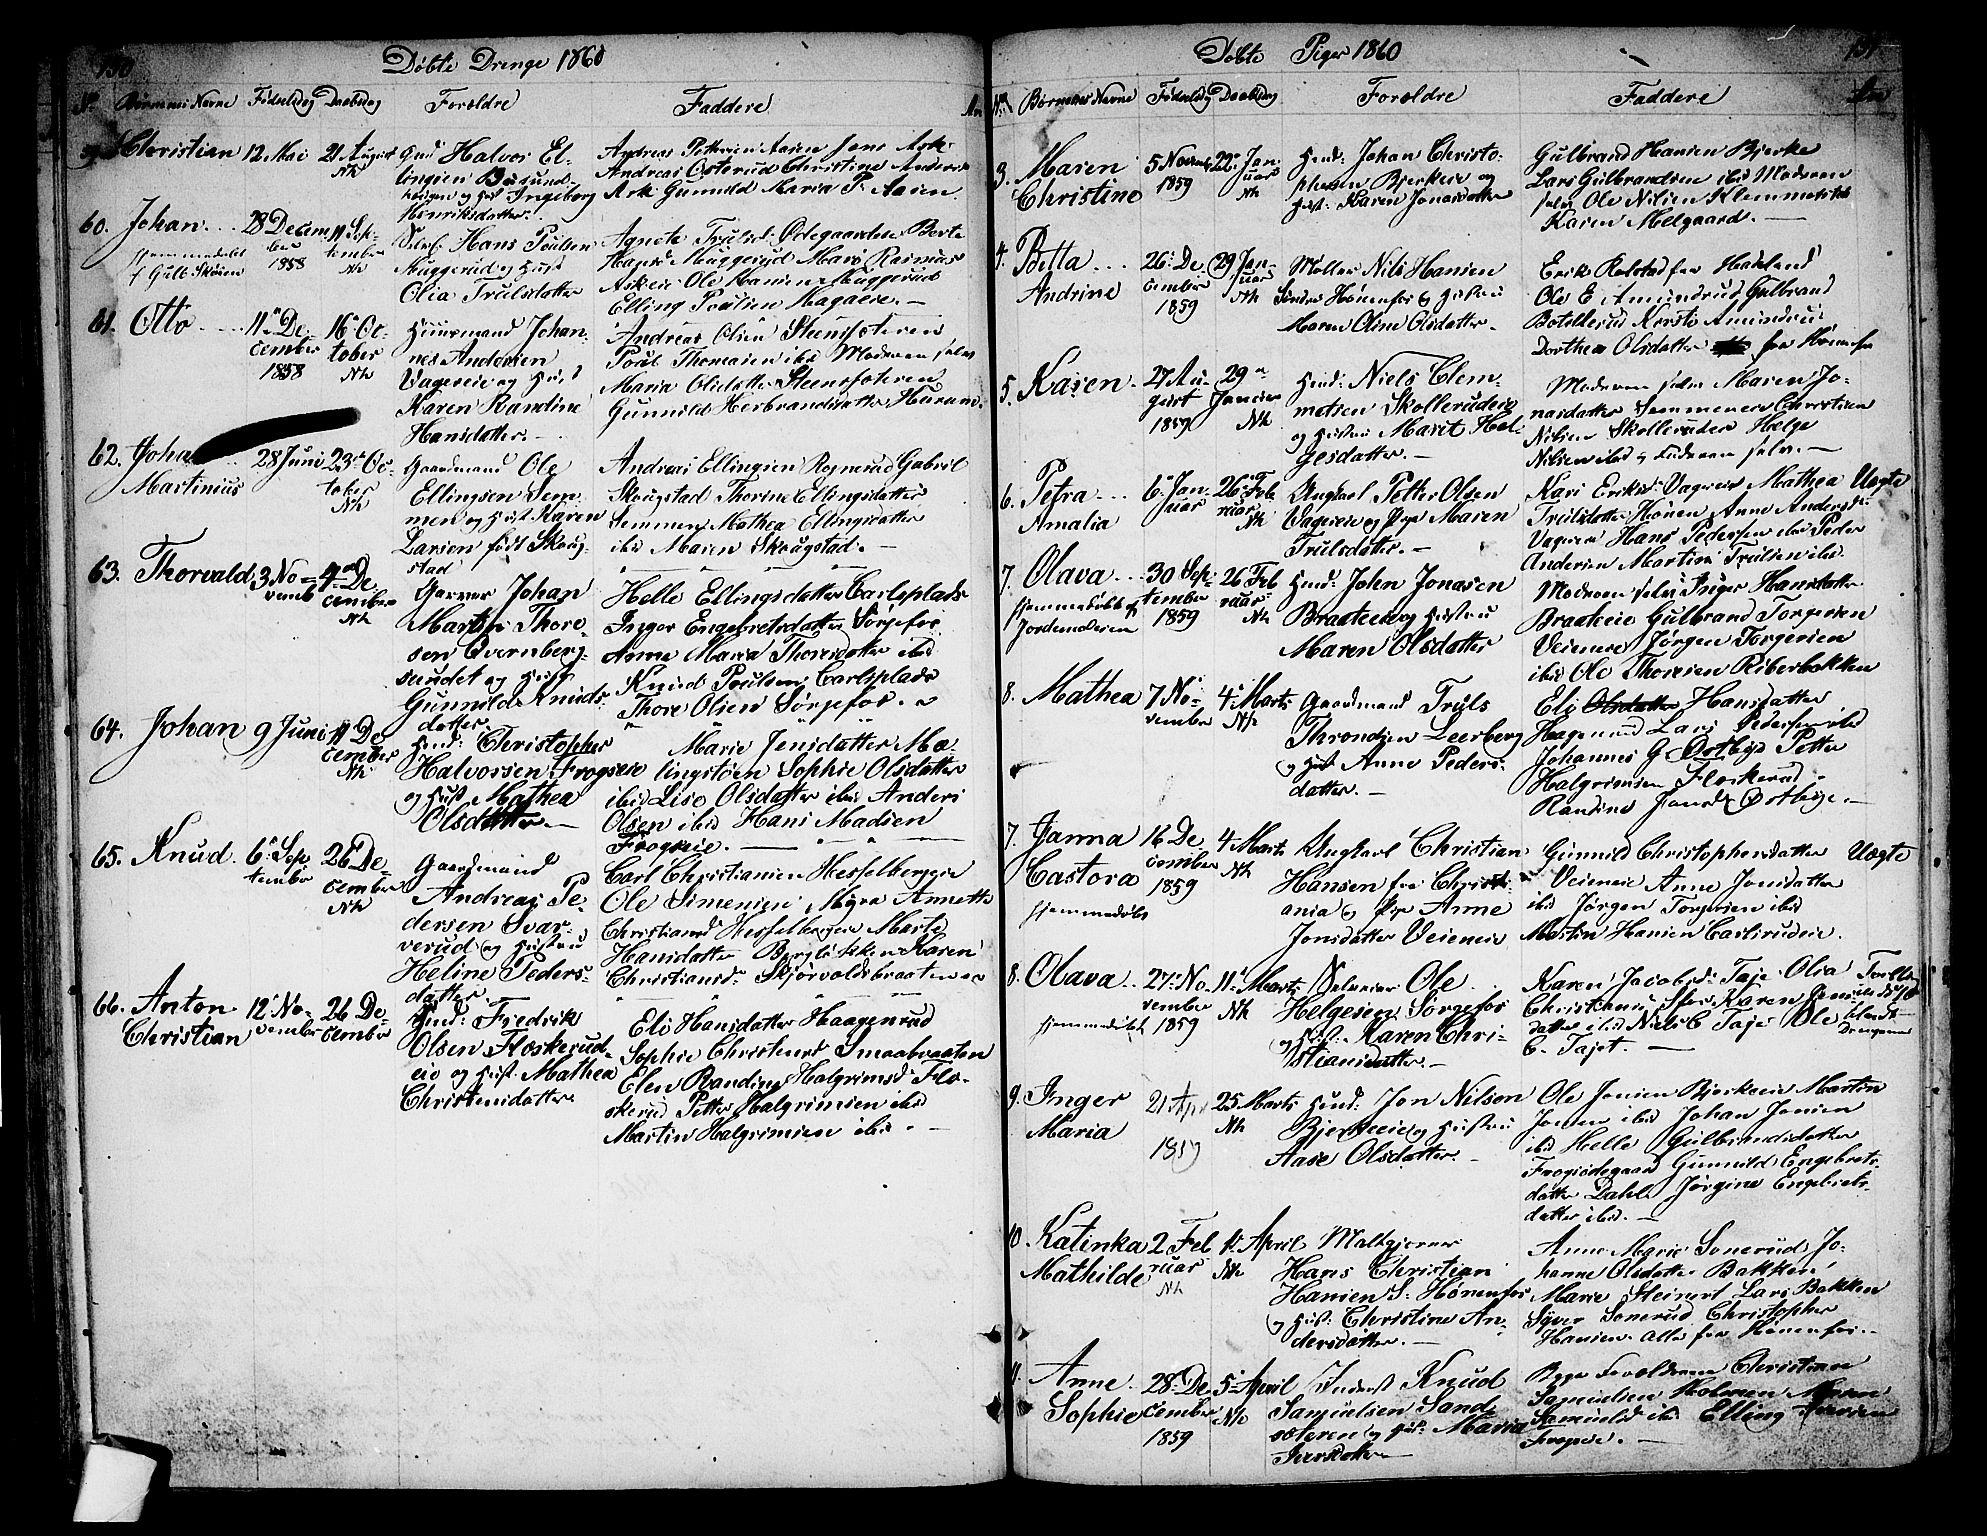 130
Döbte Drenge 1860
No Børnenes Navne Födselsdag Daabsdag Forældre Faddere An
59 Christian 12 Mai 21 August Nh
Gmd Halvor El-
lingsen Busund-
Henriksdatter
Andreas Pettersen Aasen Jens Ask
Andreas Osterud Christine Anders
Ask Gunnild Maria P. Aasen
60. Johan 28 Decem-
ber 1858
11 Sep-
tember
Nh
hjemmedöbt
f Gulb Sköien
Selvf. Hans Poulsen
Muggerud og Hust
Olia Trulsdatter
Agnete Trulsd. Ödegaarden Berte
Hansd. Muggerud Mari Rasmusd
Askeie Ole Hansen Muggerud
Elling Poulsen Hagaeie. —
61. Otto 11 De-
cember
1858
16 Oc-
tober
Nh
Huusmand Johan-
nes Andersen
Vageseie og Hust
Karen Randine
Hansdatter. —
Andreas Olsen Steensæteren
Poul Thomasen ibid Moderen selv
Maria Olsdatter Steensæteren
Gunnild Herbrandsdatter Hurum.
62. Johan
Martinius
28 Juni 23 Oc-
tober
Nh
Gaardmand Ole
Ellingsen Sem-
men og Hust Karen
Larsen födt Skoug-
stad
Andreas Ellingsen Rognerud Gabriel
Skougstad Thorine Ellingsdatter
Semmen Mathea Ellingsdatter
ibid Maren Skougstad. —
63. Thorvald 3 No-
vemb
4 De-
cember
Nh
Garver Johan
Martin Thore-
sen Qvernberg-
sundet og Hust
Gunnild Knuds-
datter.
Helle Ellingsdatter Carlsplads
Inger Engebretsdatter Sørgefos
Anne Maria Thoresdatter ibid
Knud Poulsen Carlsplads
Thore Olsen Sørgefos. —
64. Johan 9 Juni 11 De-
cember
Nh
Hmd: Christopher
Halvorsen Frogseie
og Hust Mathea
Olsdatter. —
Marie Jensdatter Mo-
lingstöen Sophie Olsdatter
ibid Lise Olsdatter ibid Anders
Olsen ibid Hans Madsen
Frogseie. —
65. Knud 6 Sep-
tember
26 De-
cember
Nh
Gaardmand
Andreas Pe-
dersen Svar-
verud og Hustru
Heline Peders-
datter.
Carl Christiansen Hesselbergeie
Ole Simensen Myra Annette
Christiansd Hesselbergeie Marte
Hansdatter Bergløkken Karen
Christiansd: Skjørvoldsbraaten
66. Anton
Christian
12 No-
vember
26 De-
cember
Hmd: Fredrik
Olsen Floskerud-
eie og Hust. Mathea
Christensdatter
Eli Hansdatter Haagenrud
Sophie Christensd Smaabraaten
Elen Randine Halgrimsd Flo-
skerud Petter Halgrimsen ibid
Martin Halgrimsen ibid. —
131
Döbte Piger 1860
No Børnenes Navne Födselsdag Daabsdag Forældre Faddere An
3. Maren
Christine
5 Novemb
1859
22 Jan-
uar
Nh
Hmd: Johan Christo-
phersen Bjerkeie og
Hust: Karen Jonasdatter
Gulbrand Hansen Bjerke
Lars Gulbrandsen ibid Moderen
selv Ole Nilsen Klemmetsteb
Karen Melgaard. —
4. Betta
Andrine
26 De-
cember
1859
29 Jan-
uar
Nh
Møller Nils Hansen
Söndre Hønenfos og Hustru
Maren Oline Olsdatter.
Erik Rolstad fra Hadeland
Ole E. Amundrud Gulbrand
Botolfsrud Kirsti Amundrud
Dorthea Olsdatter fra Hønenfos
5. Karen 27 Au-
gust
1859
29
Januar
Nh
Hmd: Niels Clem-
metsen Skollerudeie
og Hustru Marit Hel-
gesdatter. —
Moderen selv Maren Jo-
nasdatter Semmeneie Christian
Nilsen Skollerudeie Helge
Nilsen ibid og Faderen selv. —
6. Petra
Amalia
6 Jan-
uar
26 Feb-
ruar
Nh
Ungkarl Petter Olsen
Vageseie og Pige Maren
Trulsdatter. —
Kari Eriksd: Vageseie Mathea
Trulsdatter Hönen Anne Andersd:
Vageseie Hans Pedersen ibid Peder
Andersen Martin Trulsen ibid.
Uægte
7. Olava 30 Sep-
tember
1859
26 Feb-
ruar
Nh
hjemmedöbt af
Jordemoderen
Hmd: John Jonasen
Braateeie og Hustru
Maren Olsdatter
Moderen selv Inger Hansdatter
Braateeie Gulbrand Torgersen
Veieneie Jörgen Torgersen
ibid Ole Thoresen Riberbakken
8. Mathea 7 No-
vember
4 Marts
Nh
Gaardmand Truls
Throndsen Leerberg
og Hust Anne Peders-
datter. —
Eli Olsdatter Hansdatter
Hagenrud Lars Pedersen ibid
Johannes G Østbye Petter
Halgrimsen Floskerud
Randine Jansd: Østbye. —
7. Janna
Castora
16 De-
cember
1859
4 Marts
Nh
hjemmedöbt
Ungkarl Christian
Hansen fra Christi-
ania og Pige Anne
Jonsdatter Veieneie
Gunnild Christophersdatter
Veieneie Anne Jonsdatter
ibid Jörgen Torgersen ibid
Martin Hansen Carlsrudeie.
Uægte
8. Olava 27 No-
vember
1859
11 Marts
Nh
hjemmedöbt
Selveier Ole
Helgesen Sørgefos
og Hust: Karen Chri-
stiansdatter. —
Karen Jacobsd: Taje Olia
Christiansd:
datter ibid Niels C Taje Ole
C. Tajet. —
blandt
Drengene
9. Inger
Maria
21 Apr
1859
25 Marts
Nh
Hmd: Jon Nilsen
Bjerkeeie og Hustru
Aase Olsdatter. —
Ole Jonsen Bjerkeeie Martin
Jonsen ibid Johan Jonsen
ibid Helle Gulbrandsdatter
Frogsødegaard Gunnild Engebrets-
datter Dahl Jørgine Engebrets-
datter ibid. —
10. Katinka
Mathilde
2 Feb-
ruar
Nh
1 April
Nh
Maltgjører
Hans Christian
Hansen S: Hønenfos
og Hust: Christine An-
dersdatter. —
Anne Marie Sonerud Jo-
hanne Olsdatter Bakken
Marie Steinert Lars Bakken
Syver Sonerud Christopher
Hansen alle fra Hønenfos. —
11. Anne
Sophie
28 De-
cember
1859
5 April
Nh
Inderst Knud
Samuelsen Sand-
sæteren og Hust: Maria
Iversdatter —
Begge Forældrene Christian
Samuelsen Holmen Maren
Samuelsd ibid Elling Iversen
Frogseie. —